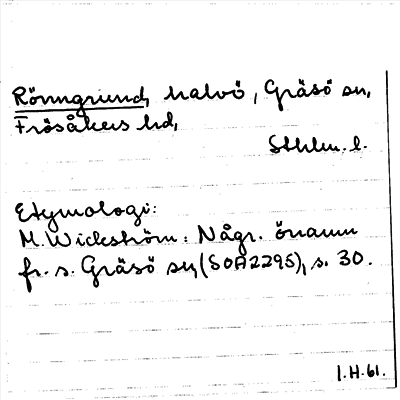 Rönngrund, halvö, Gräsö sn,
Frösåkers hd,
Sthlm. l.
Etymologi:
M. Wickström: Någr. önamn
fr. s. Gräsö sn, (SOA2295), s. 30.
I.H.61.